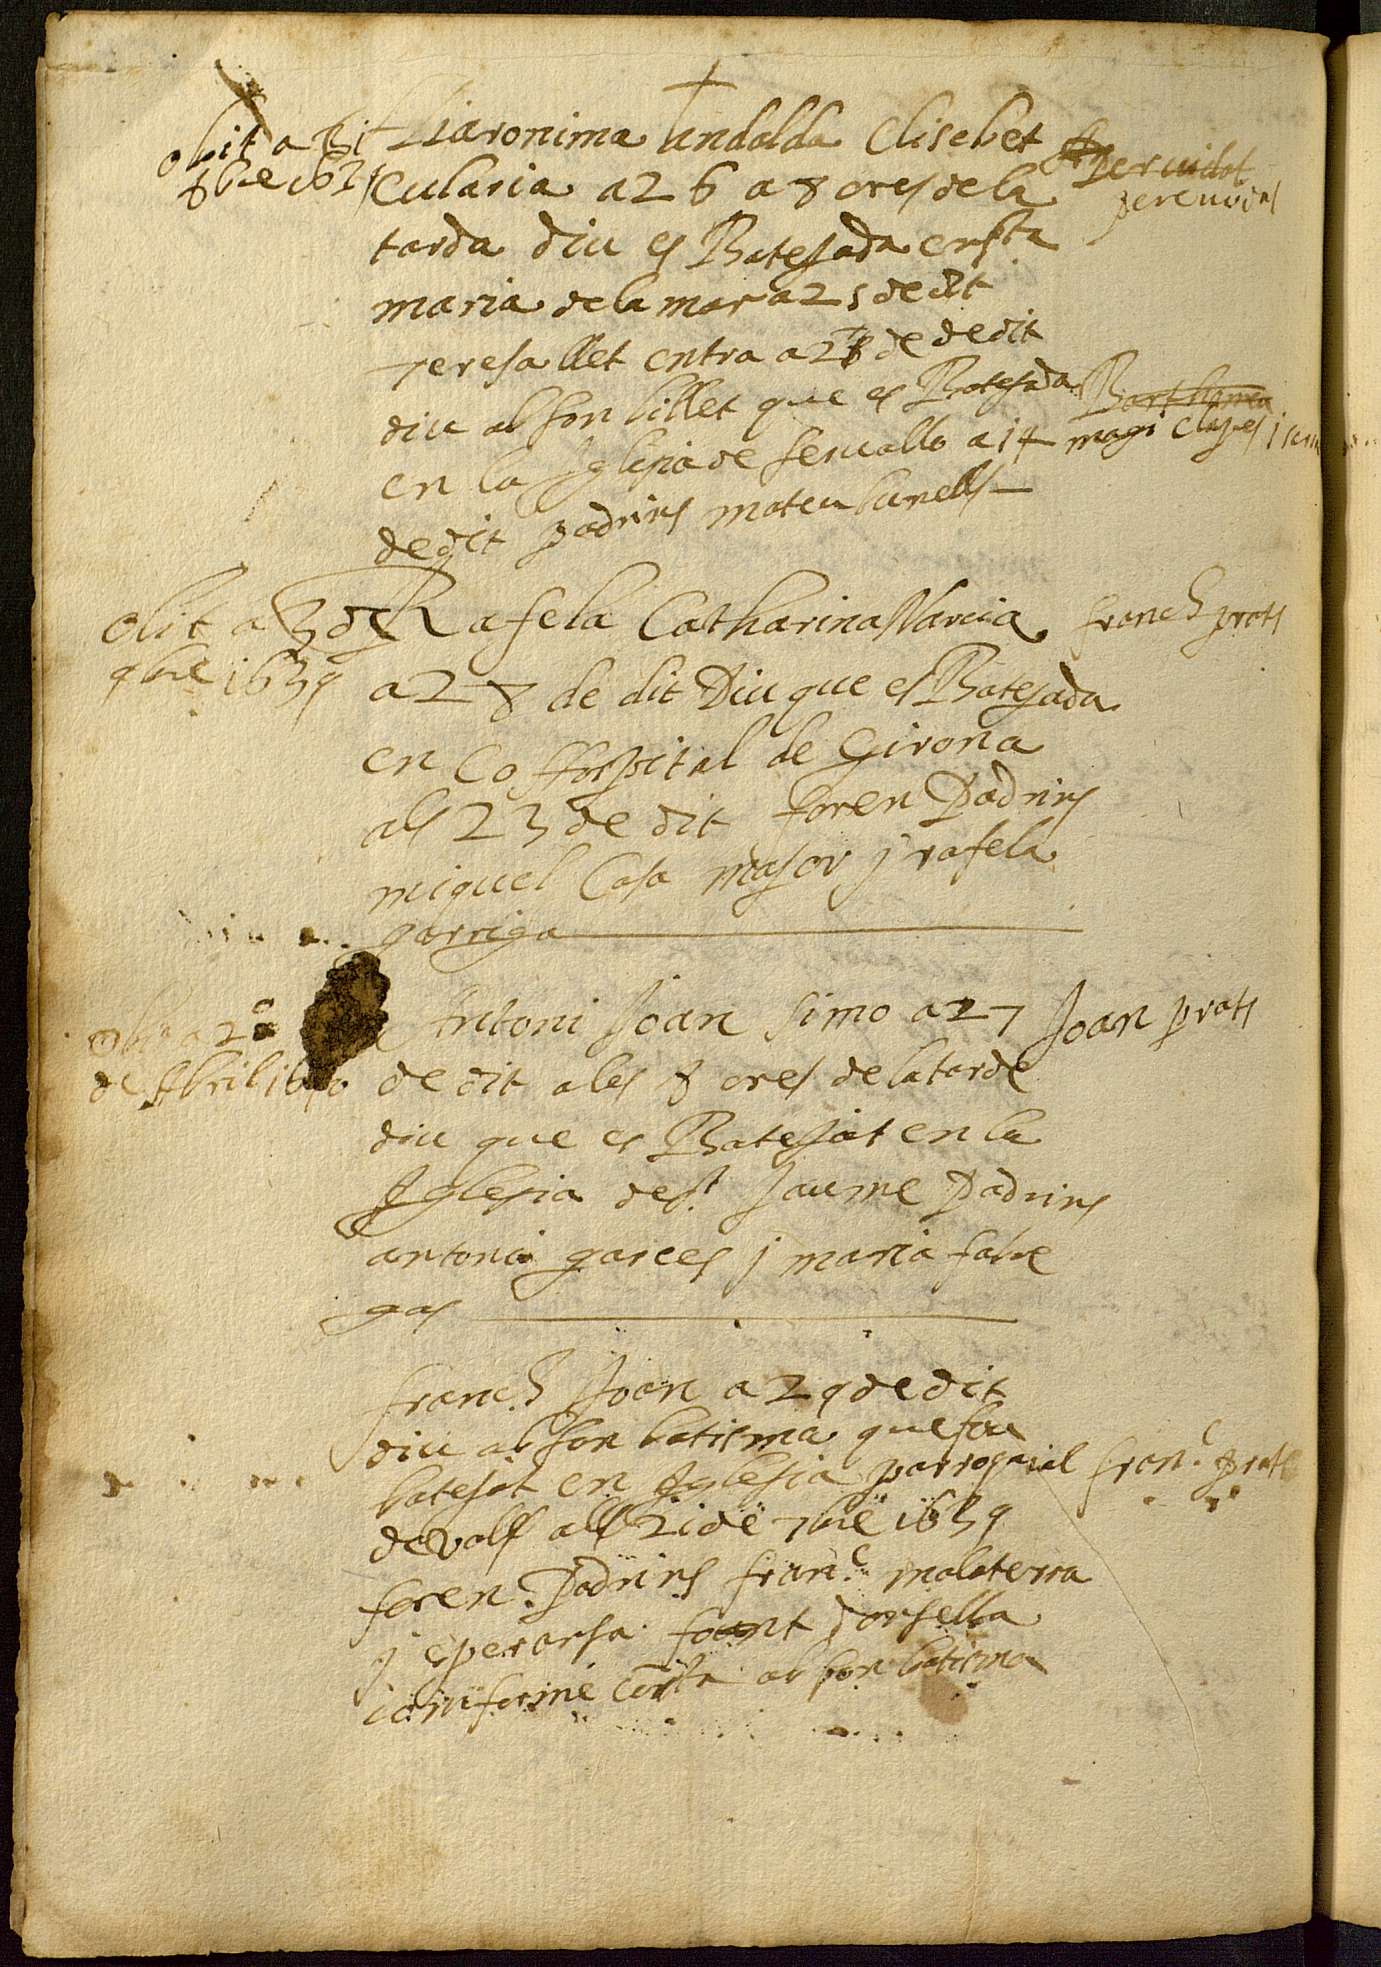 obit a 31
8bre 163
Hiaronima undalda Elisebet
Eularia a 26 a 8 ores de la
tarda diu es Batejada en sta
maria de la mar a 25 de dit
pere vidal
Teresa llet entra a 28 de dedit
diu ab son billet que es Batejada
en la Iglesia de servallo a 14
de dit padrins mateu
Barthomeu
magi
obit a 3 de
9bre 1639
Rafela Catharina Narcia
a 28 de dit Diu que es Batejada
en lo Hospital de Girona
als 23 de dit foren Padrins
miquel Casa major j rafela
garriga
franch prats
a 2
de Abril 16
Antoni Joan simo a 27
de dit a les 8 ores de la tarde
diu que es Batejat en la
Iglesia de st Jaume Padrins
antoni garces j maria fabre
gas
Joan prats
franch Joan a 29 de dit
diu ab son batisma que fou
batejat en Iglesia parroquial
de valls als 21 de 7bre 1639
foren Padrins franc malaterra
j esperansa font
conforme consta ab son batisma
franc prats